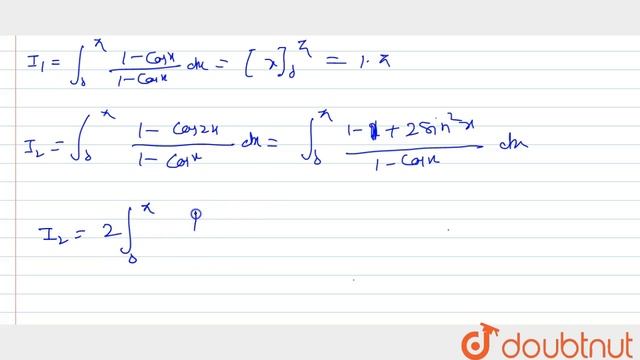 I₁ = ∫₀^π (1 - Cosx)/(1 - Cosx) dx = [x]₀^π = 1.π
I₂ = ∫₀^π (1 - Cos2x)/(1 - Cosx) dx = ∫₀^π (1 - 1 + 2Sin²x)/(1 - Cosx) dx
I₂ = 2∫₀^π
doubtnut